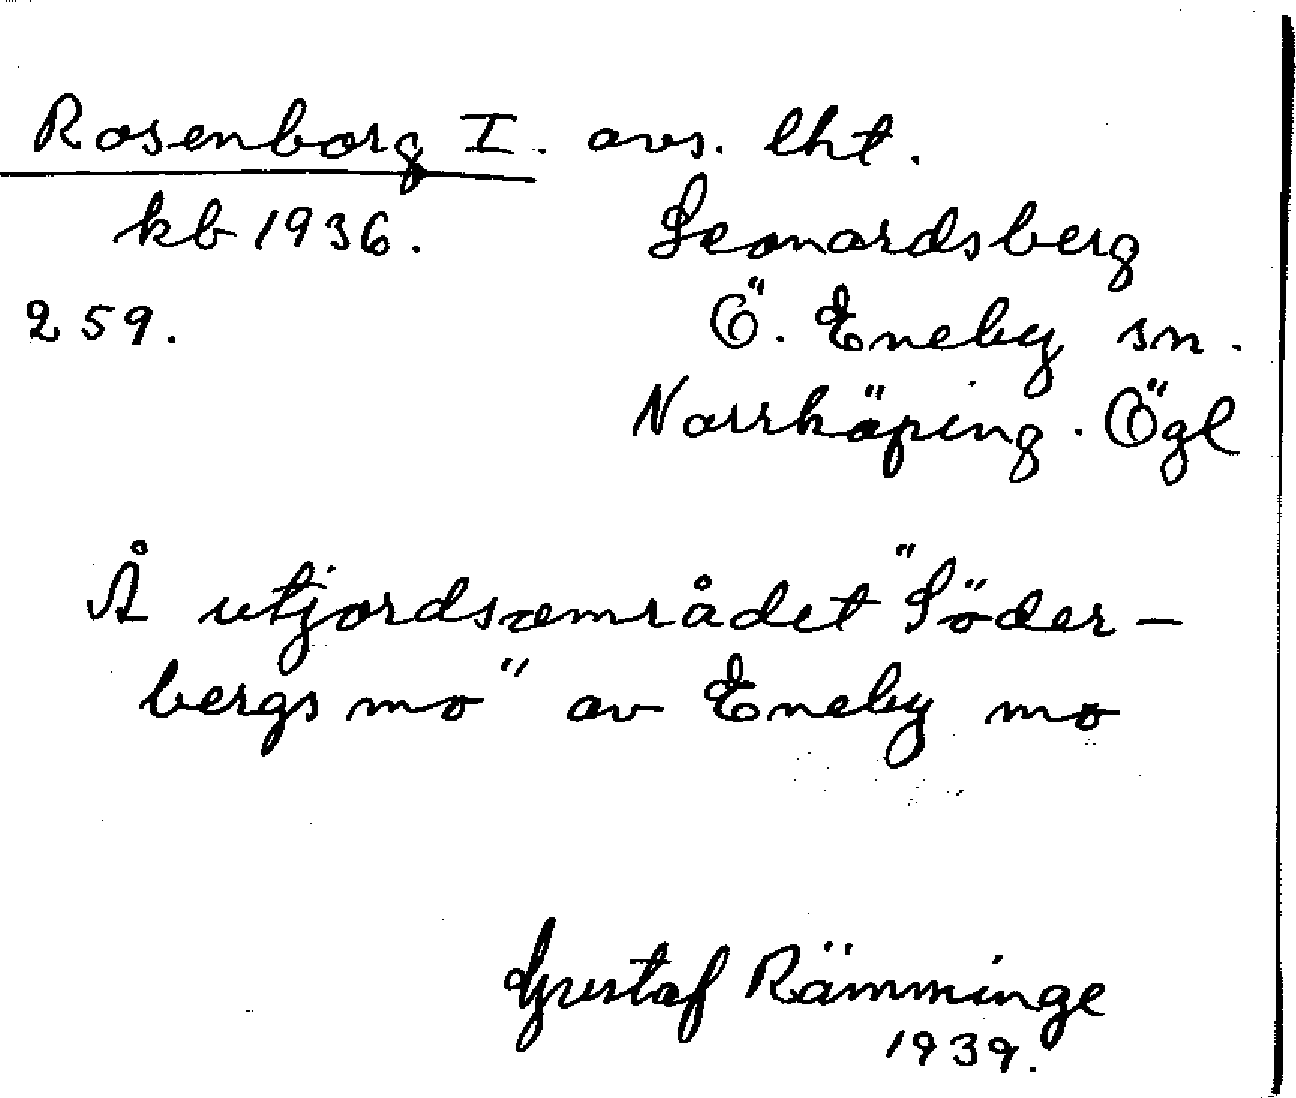 Rosenborg I. avs. lht.
kb 1936. Leonardsberg
259. Ö. Eneby sn.
Norrköping. Ögl
Å utjordsområdet "Söder-
bergs mo" av Eneby mo
Gustaf Rämminge
1939.